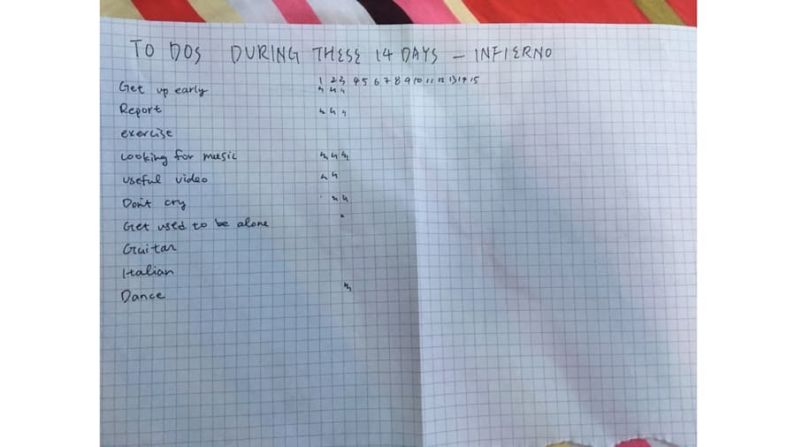 TO DOS DURING THESE 14 DAYS - INFIERNO
1 2 3 4 5 6 7 8 9 10 11 12 13 14 15
Get up early
Report
exercise
Looking for music
useful video
Don't cry
Get used to be alone
Guitar
Italian
Dance